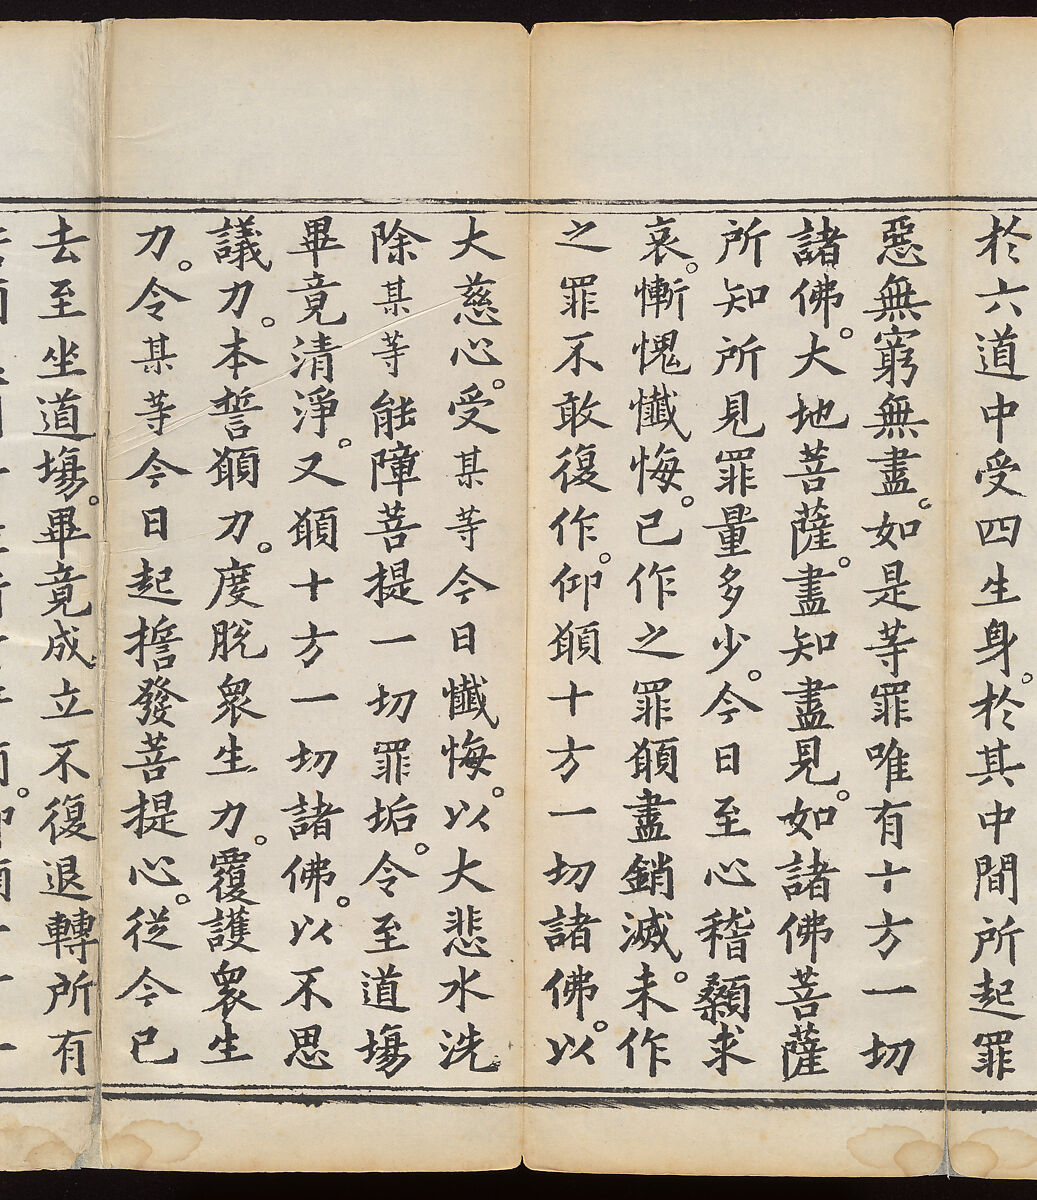 於六道中受四生身。於其中間所起罪
惡無窮無盡。如是等罪唯有十方一切
諸佛。大地菩薩。盡知盡見。如諸佛菩薩
所知所見罪量多少。今日至心稽顙求
哀。慚愧懺悔。已作之罪願盡銷滅。未作
之罪不敢復作。仰願十方一切諸佛。以
大慈心。受某等今日懺悔。以大悲水洗
除某等能障菩提一切罪垢。令至道場
畢竟清淨。又願十方一切諸佛。以不思
議力。本誓願力。度脫衆生力。覆護衆生
力。令某等今日起擔發菩提心。從今已
去至坐道場。畢竟成立不復退轉所有